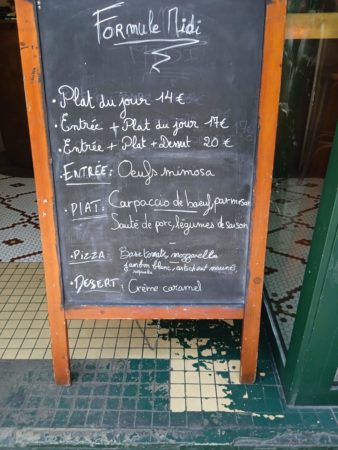 Formule Midi
• Plat du jour 14 €
• Entrée + Plat du jour 17€
• Entrée + Plat + Dessert 20 €
• ENTRÉE: Oeufs mimosa
• PLAT: Carpaccio de bœuf, parmesan
Sauté de porc, légumes de saison
• PIZZA Base tomate, mozzarella
jambon blanc, artichaut marinés,
roquette
• DESERT: Crème caramel